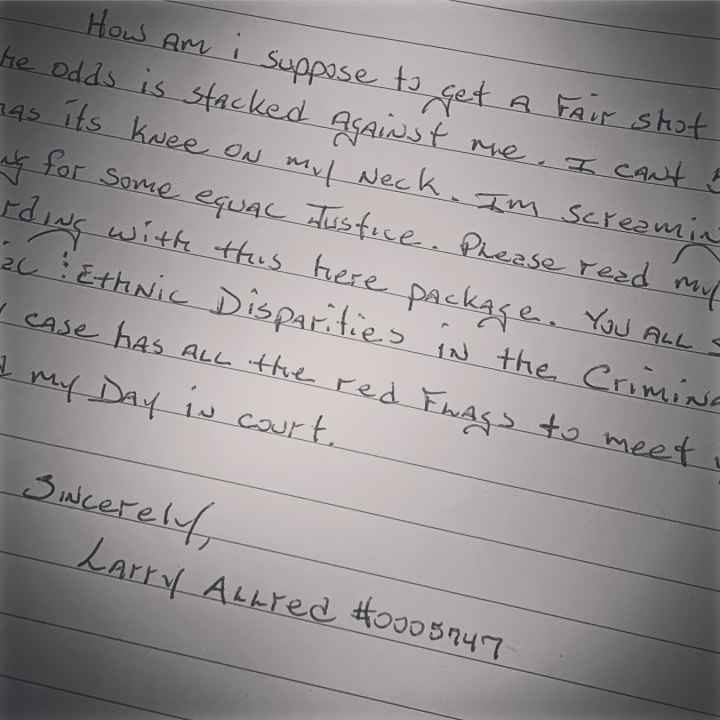 How Am i suppose to get A FAir shot
he odds is stacked AgAiNst me. I cant
its kNee ON my Neck. Im screamin
for some equal Justice. Please read my
rding with this here pAckAge. You All
: EthNic Disparities iN the CrimiNa
case hAs All the red FlAgs to meet
my DAy iN court.
SiNcerely,
LArry Allred #0005747